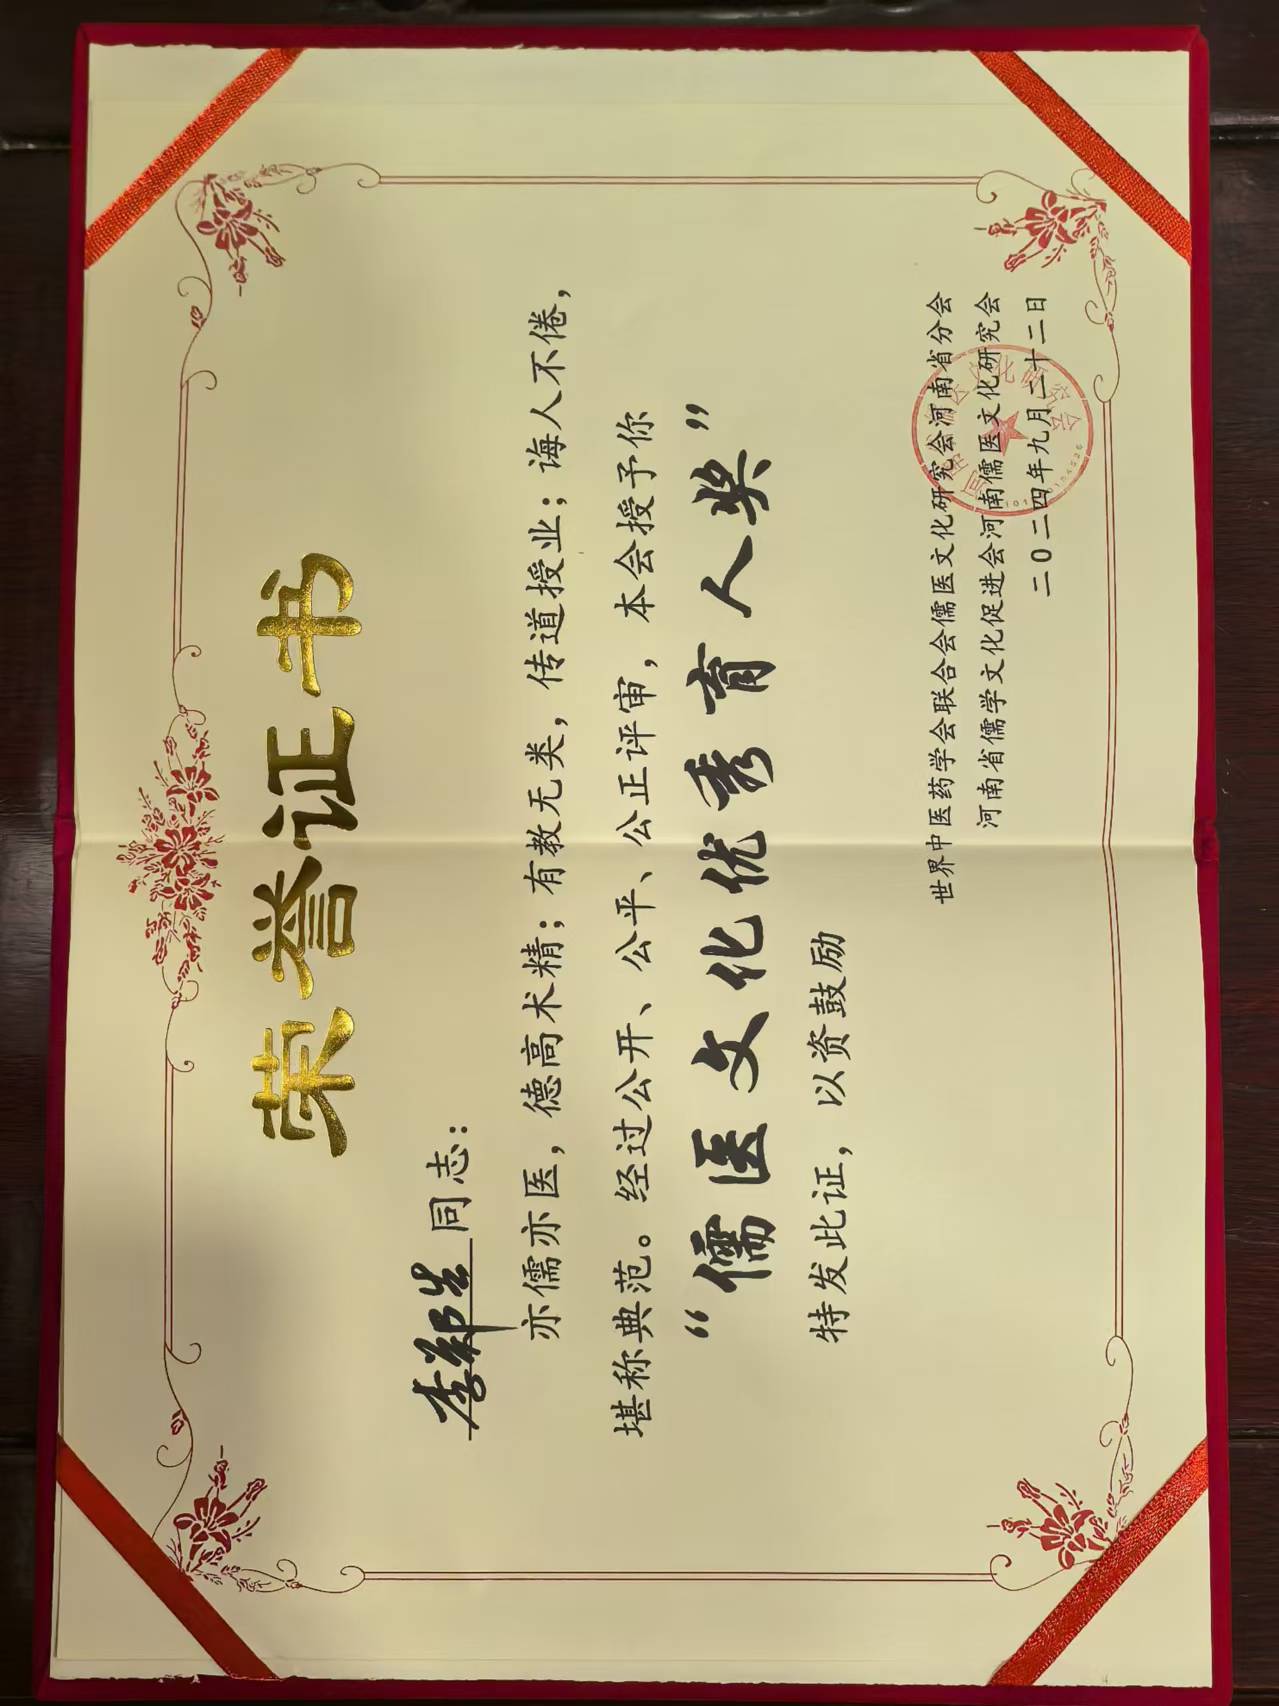 荣誉证书
李郑生同志：
亦儒亦医，德高术精；有教无类，传道授业；诲人不倦，
堪称典范。经过公开、公平、公正评审，本会授予你
“儒医文化优秀育人奖”
特发此证，以资鼓励
世界中医药学会联合会儒医文化研究会河南省分会
河南省儒学文化促进会河南儒医文化研究会
二〇二四年九月二十二日